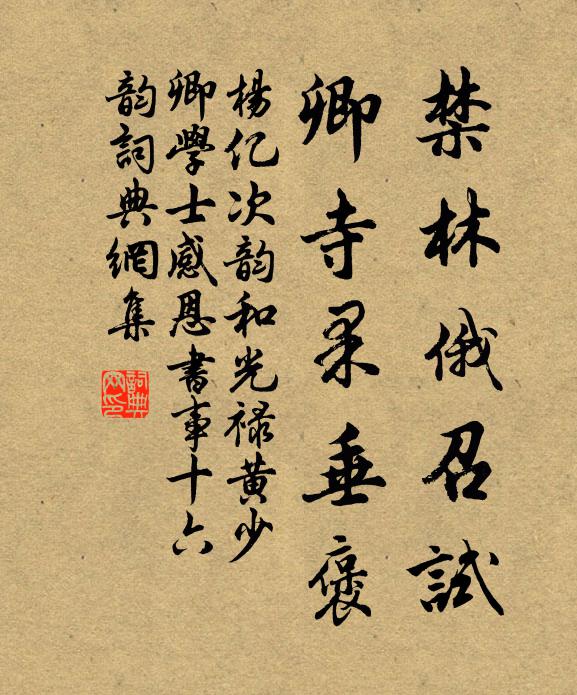 禁林俄召試
卿寺垂褒
楊亿次韵和光禄黄少
卿學士感恩書事十六
韵詞典網集
詞典網印